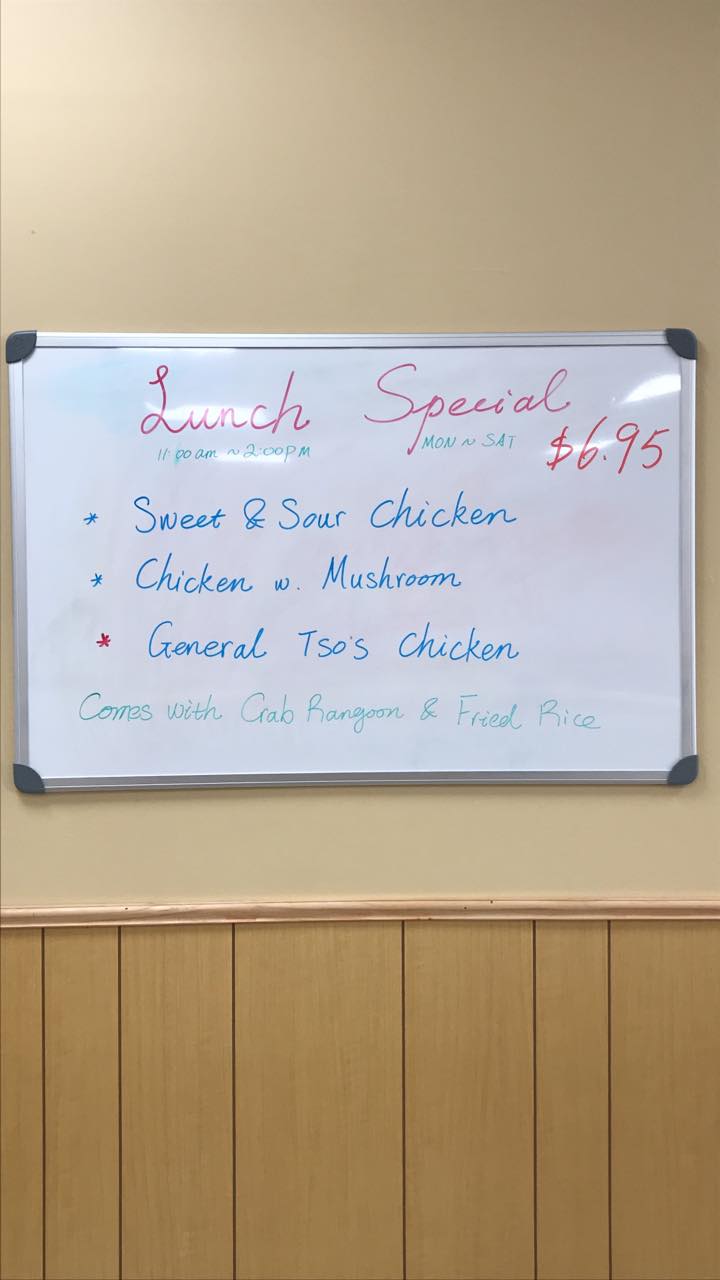 Lunch Special
11:00am ~ 2:00PM MON ~ SAT $6.95
* Sweet & Sour Chicken
* Chicken w. Mushroom
* General Tso's Chicken
Comes with Crab Rangoon & Fried Rice